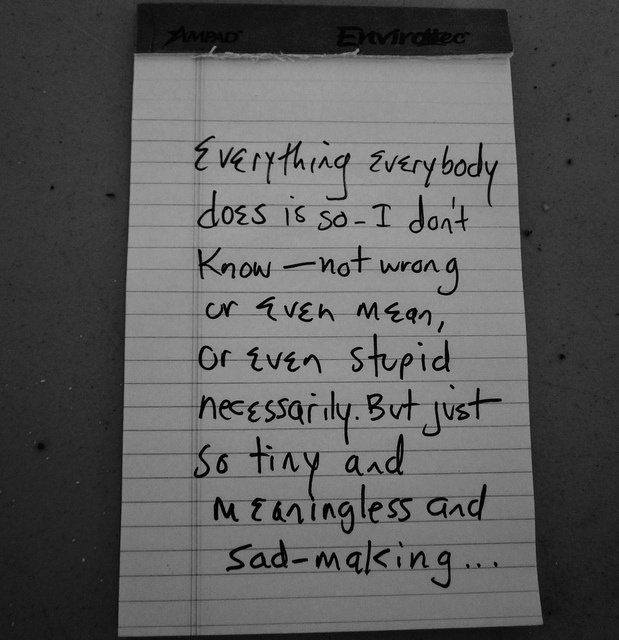 AMPAD Envirotec
Everything everybody
does is so - I don't
Know — not wrong
or even mean,
or even stupid
necessarily. But just
so tiny and
meaningless and
sad-making...